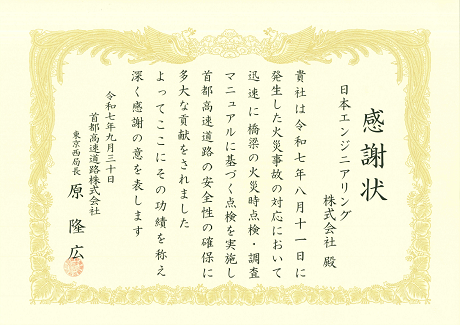 感謝状
日本エンジニアリング
株式会社 殿
貴社は令和七年八月十一日に
発生した火災事故の対応において
迅速に橋梁の火災時点検・調査
マニュアルに基づく点検を実施し
首都高速道路の安全性の確保に
多大な貢献をされました
よってここにその功績を称え
深く感謝の意を表します
令和七年九月三十日
首都高速道路株式会社
東京西局長 原 隆広